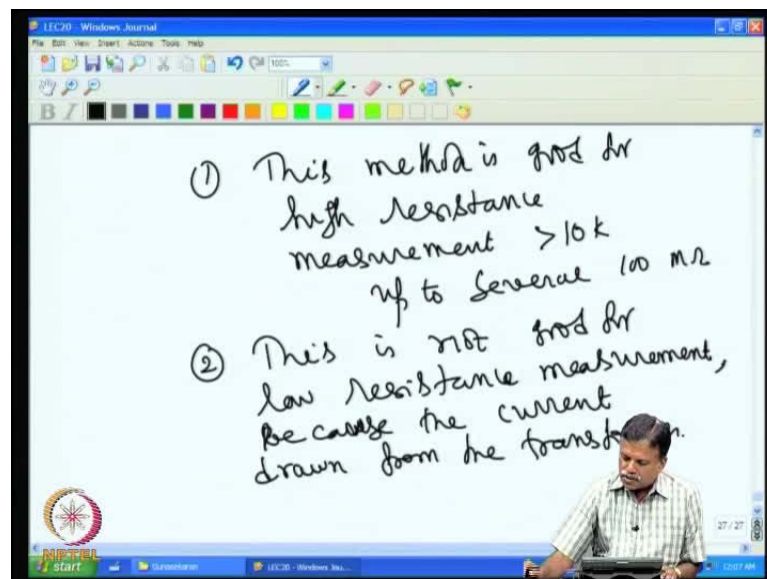 LEC20 - Windows Journal
File Edit View Insert Actions Tools Help
100%
B I
① This method is good for
high resistance
measurement >10k
up to several 100 MΩ
② This is not good for
low resistance measurement,
because the current
drawn from the
27 / 27
NPTEL
start
Gunasekaran
LEC20 - Windows Jou...
12:07 AM